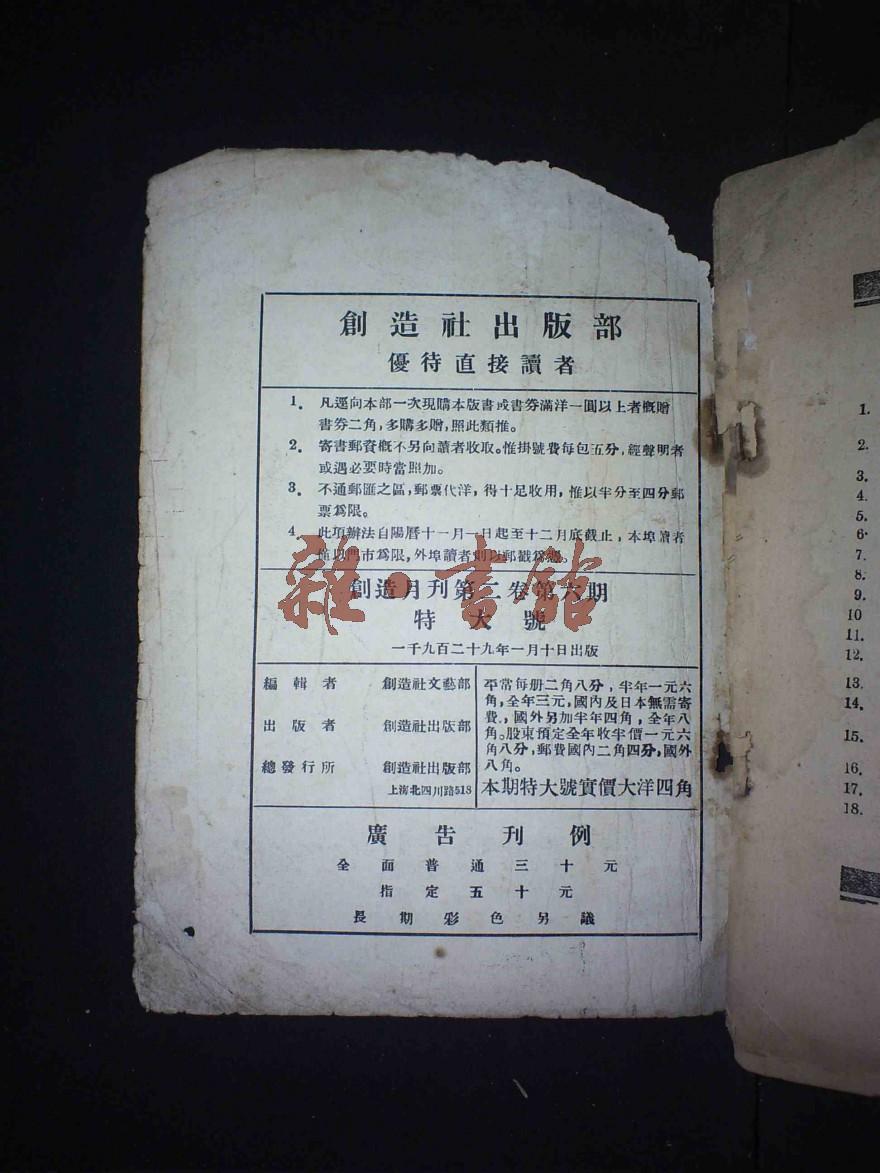 創造社出版部
優待直接讀者
1. 凡逕向本部一次現購本版書或書券滿洋一圓以上者概贈
書券二角，多購多贈，照此類推。
2. 寄書郵資概不另向讀者收取。惟掛號費每包五分，經聲明者
或遇必要時當照加。
3. 不通郵匯之區，郵票代洋，得十足收用，惟以半分至四分郵
票爲限。
4. 此項辦法自陽曆十一月一日起至十二月底截止，本埠讀者
惟以門市爲限，外埠讀者則以郵戳爲憑。
創造月刊第二卷第六期
特大號
一千九百二十九年一月十日出版
編輯者 創造社文藝部
出版者 創造社出版部
總發行所 創造社出版部
上海北四川路518
平常每册二角八分，半年一元六
角，全年三元，國內及日本無需寄
費，國外另加半年四角，全年八
角。股東預定全年收半價一元六
角八分，郵費國內二角四分，國外
八角。
本期特大號實價大洋四角
廣告刊例
全面普通三十元
指定五十元
長期彩色另議
雜·書館
1.
2.
3.
4.
5.
6.
7.
8.
9.
10
11.
12.
13.
14.
15.
16.
17.
18.